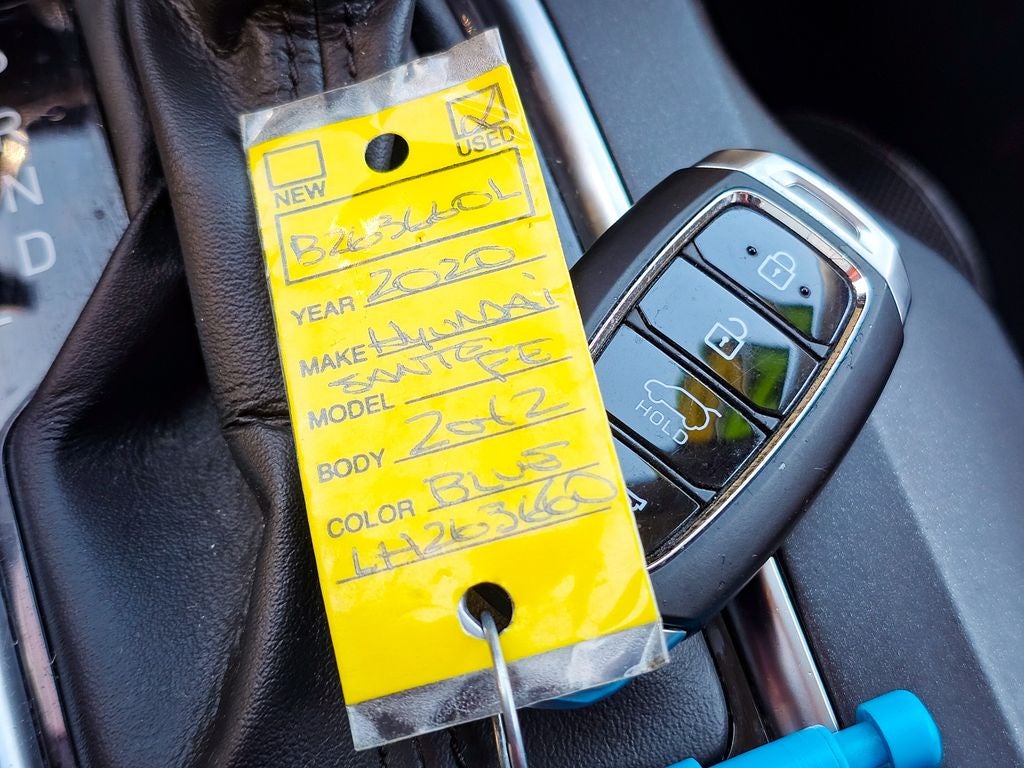 R
N
D
NEW
USED
B263660L
YEAR 2020
MAKE HYUNDAI
SANTE
MODEL FE
BODY
COLOR BLUE
LH263660
HOLD